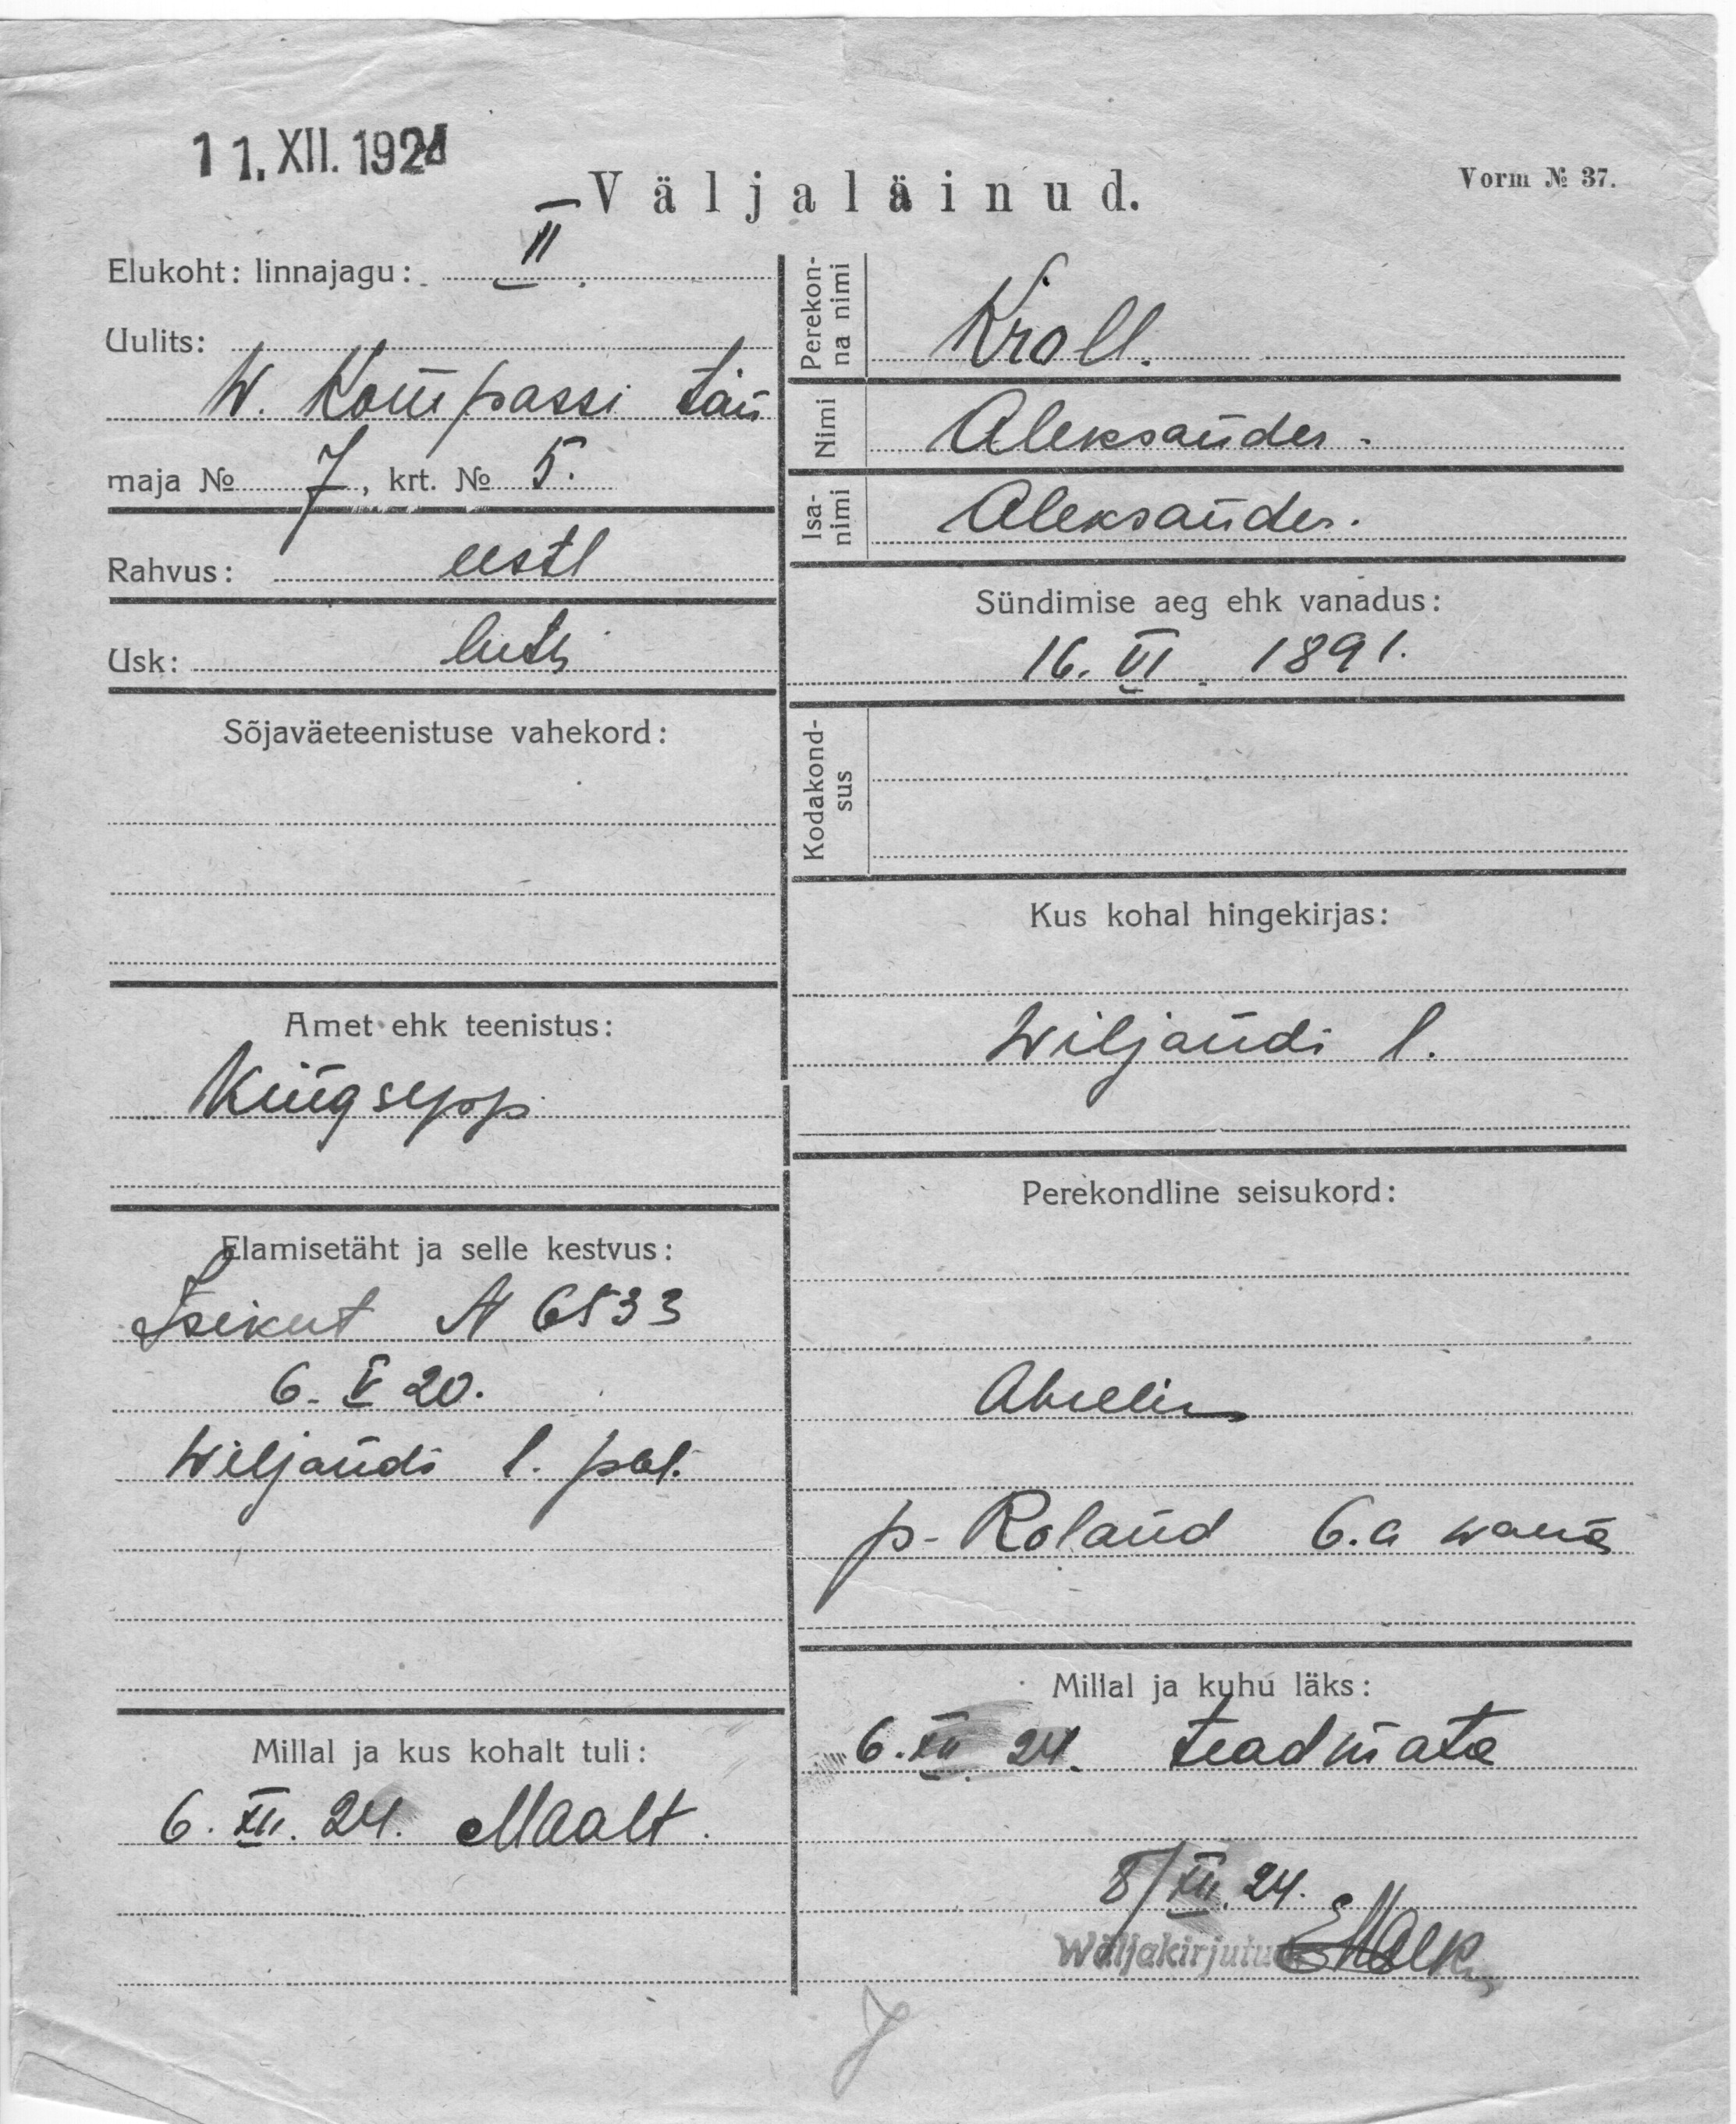 11. XII. 1924
Väljaläinud.
Vorm № 37.
Elukoht: linnajagu: II
Uulits:
W. Kompassi tän
maja № 7, krt. № 5.
Rahvus: eestl
Usk: luth
Sõjaväeteenistuse vahekord:
Amet ehk teenistus:
Kingsepp
Elamisetäht ja selle kestvus:
Isikut N 6533
6. V 20.
Wiljandi l. pol.
Millal ja kus kohalt tuli:
6. XII. 24. Maalt.
Perekonna nimi
Kroll.
Nimi
Aleksander.
Isanimi
Aleksander.
Sündimise aeg ehk vanadus:
16. VI. 1891.
Kodakondsus
Kus kohal hingekirjas:
Wiljandi l.
Perekondline seisukord:
Abielus
p- Roland 6.a wana
Millal ja kuhu läks:
6. XII 24. teadmata
8/XII. 24.
Wäljakirjutud